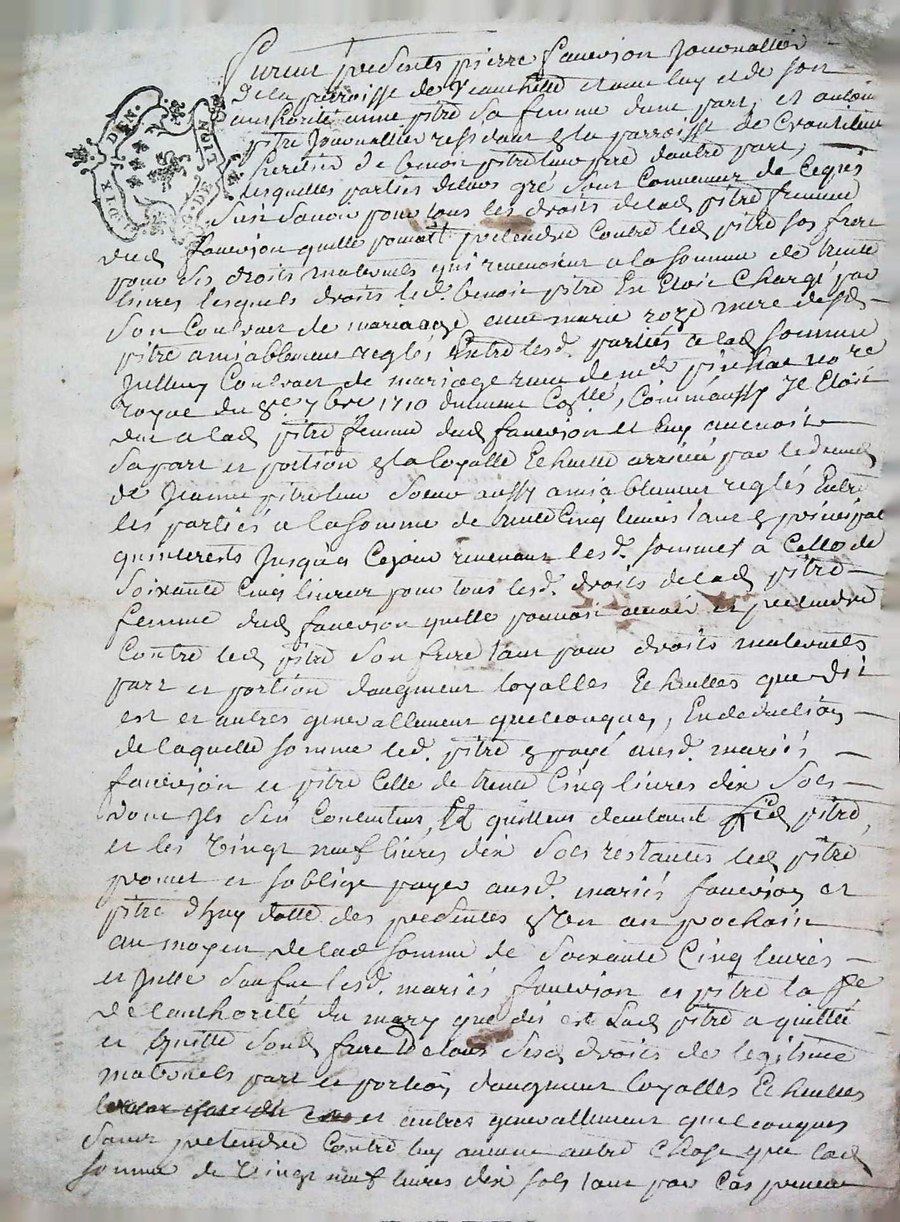 DIX DEN.
G. DE LION
Furent presents pierre fauerjon Journallier
De la parroisse de et avec luy et de son
authorité anne pitre sa femme dune part, et antoine
pitre Journallier residant a la parroisse de
heretier de benoit pitre leur pere dautre part,
lesquelles parties de leurs gré sont convenues de ce qui
suit Savoir pour tous les droits de lad pitre femme
dud fauerjon quelle pouvoit pretendre contre led pitre son frere
pour ses droits maternels qui revenoient a la somme de trente
livres lesquels droits led. benoit pitre En Etoit Chargé par
son Contract de mariage avec marie roze mere desd
pitre amiablement reglés Entre lesd. parties a lad somme
Contract de mariage recu de me no re
royal du 8e 7bre 1710 dument Comme aussy Il Etoit
deu a lad pitre femme dud fauerjon et luy avenoit
sa part et portion a la loyalle Echutte arrivée par le deces
de Jeanne pitre leur soeur aussy amiablement reglés Entre
les parties a la somme de trente cinq livres tant a principal
quinterests Jusques Cejour revenant lesd. sommes a Celle de
soixante Cinq livres pour tous lesd. droits de lad pitre
femme dud fauerjon quelle pouvoit avoir et pretendre
Contre led pitre son frere tant pour droits maternels
part et portion daugment loyalles Echuttes que dit
est et autres generallement quelconques, En deduction
de laquelle somme led. pitre a payé ausd. mariés
fauerjon et pitre Celle de trente Cinq livres dix sols
dont Ils sen Contentent, Et quittent dautant led pitre,
et les Vingt neuf livres dix sols restantes led pitre
promet et soblige payer ausd. mariés fauerjon et
pitre dhuy datte des presentes En un an prochain
au moyen de lad somme de soixante Cinq livres
et lesd. mariés fauerjon et pitre la fe
de lauthorité du mary que dit est Lad pitre a quitté
et quitte soud frere De tous sesd droits de legitime
maternels part et portion daugment loyalles Echuttes
et autres generallement quelconques
sans pretendre Contre luy aucune autre Chose que lad
somme de Vingt neuf livres dix sols tant par